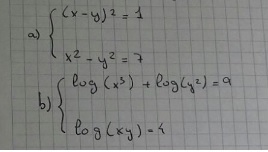 a) { (x-y)² = 1
x² - y² = 7
b) { log(x³) + log(y²) = 9
log(xy) = 4